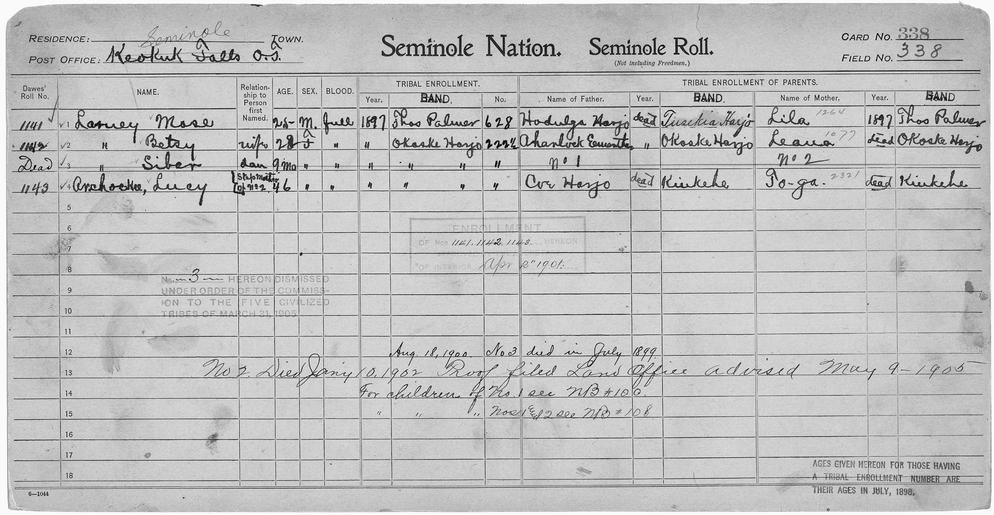 RESIDENCE: Seminole TOWN.
POST OFFICE: Keokuk Falls O.T.
Seminole Nation. Seminole Roll.
(Not including Freedmen.)
CARD NO. 338
FIELD NO. 338
Dawes' Roll No. NAME. Relationship to Person first Named. AGE. SEX. BLOOD. TRIBAL ENROLLMENT. Year. BAND. No. TRIBAL ENROLLMENT OF PARENTS. Name of Father. Year. BAND. Name of Mother. Year. BAND
1141 1 Larney Mose 25 M. full 1897 Thos Palmer 628 Hodulga Harjo dead Tusekia Harjo Lila 1264 1897 Thos Palmer
1142 2 " Betsy wife 28 F " " Okoske Harjo 2222 " Okoske Harjo Leana 1077 dead Okoske Harjo
Dead 3 " Siber dau 9 mo " " " " " No 1 No 2
1143 4 Archockee, Lucy Step Mother of No 2 46 " " " " " Coe Harjo dead Kinkehe To-ga. 2321 dead Kinkehe
5
6
ENROLLMENT
OF NOS. 1141.1142.1143. HEREON
7
OF INTERIOR Apr 2 1901.
8
No. 3 HEREON DISMISSED
9
UNDER ORDER OF THE COMMISSION TO THE FIVE CIVILIZED
10
TRIBES OF MARCH 31, 1905
11
12 Aug. 18, 1900. No 3 died in July 1899
13 No 2. Died Jany 10, 1902 Proof filed Land Office advised May 9-1905
14 For children of No. 1 see NB #100.
15 " " " Nos 1 & 2 see NB #108
16
17
18
AGES GIVEN HEREON FOR THOSE HAVING
A TRIBAL ENROLLMENT NUMBER ARE
THEIR AGES IN JULY, 1898.
6-1044